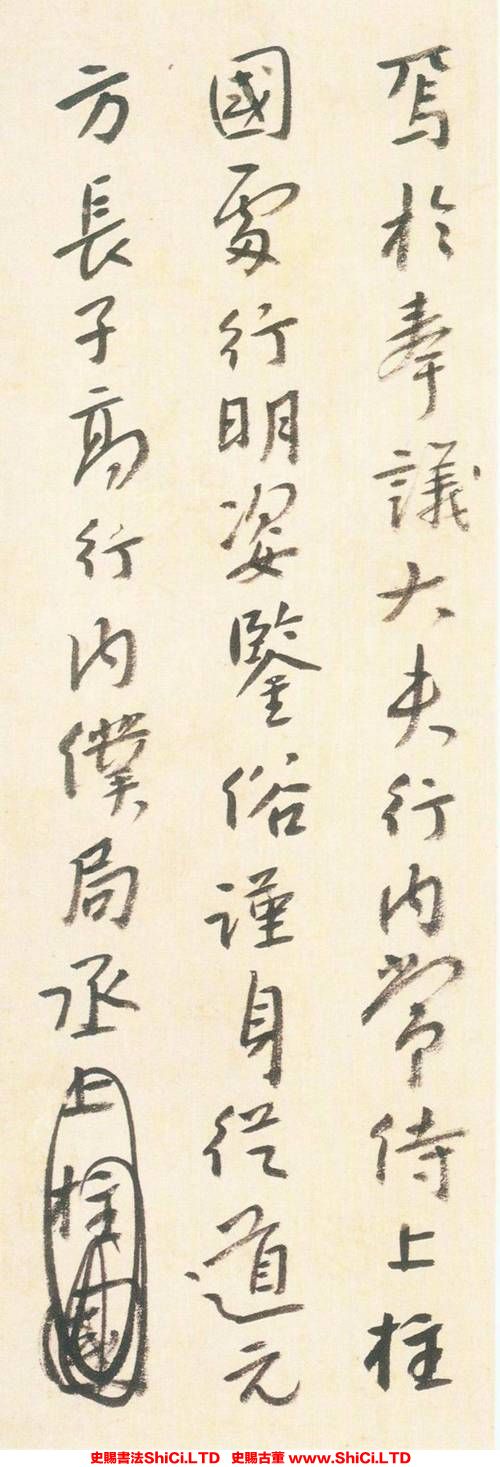 焉於奉議大夫行内常侍上柱
國處行明姿鑒俗謹身從道元
方長子高行内僕局丞上柱國
史賜書法ShiCi.LTD 史賜古董 www.ShiCi.LTD